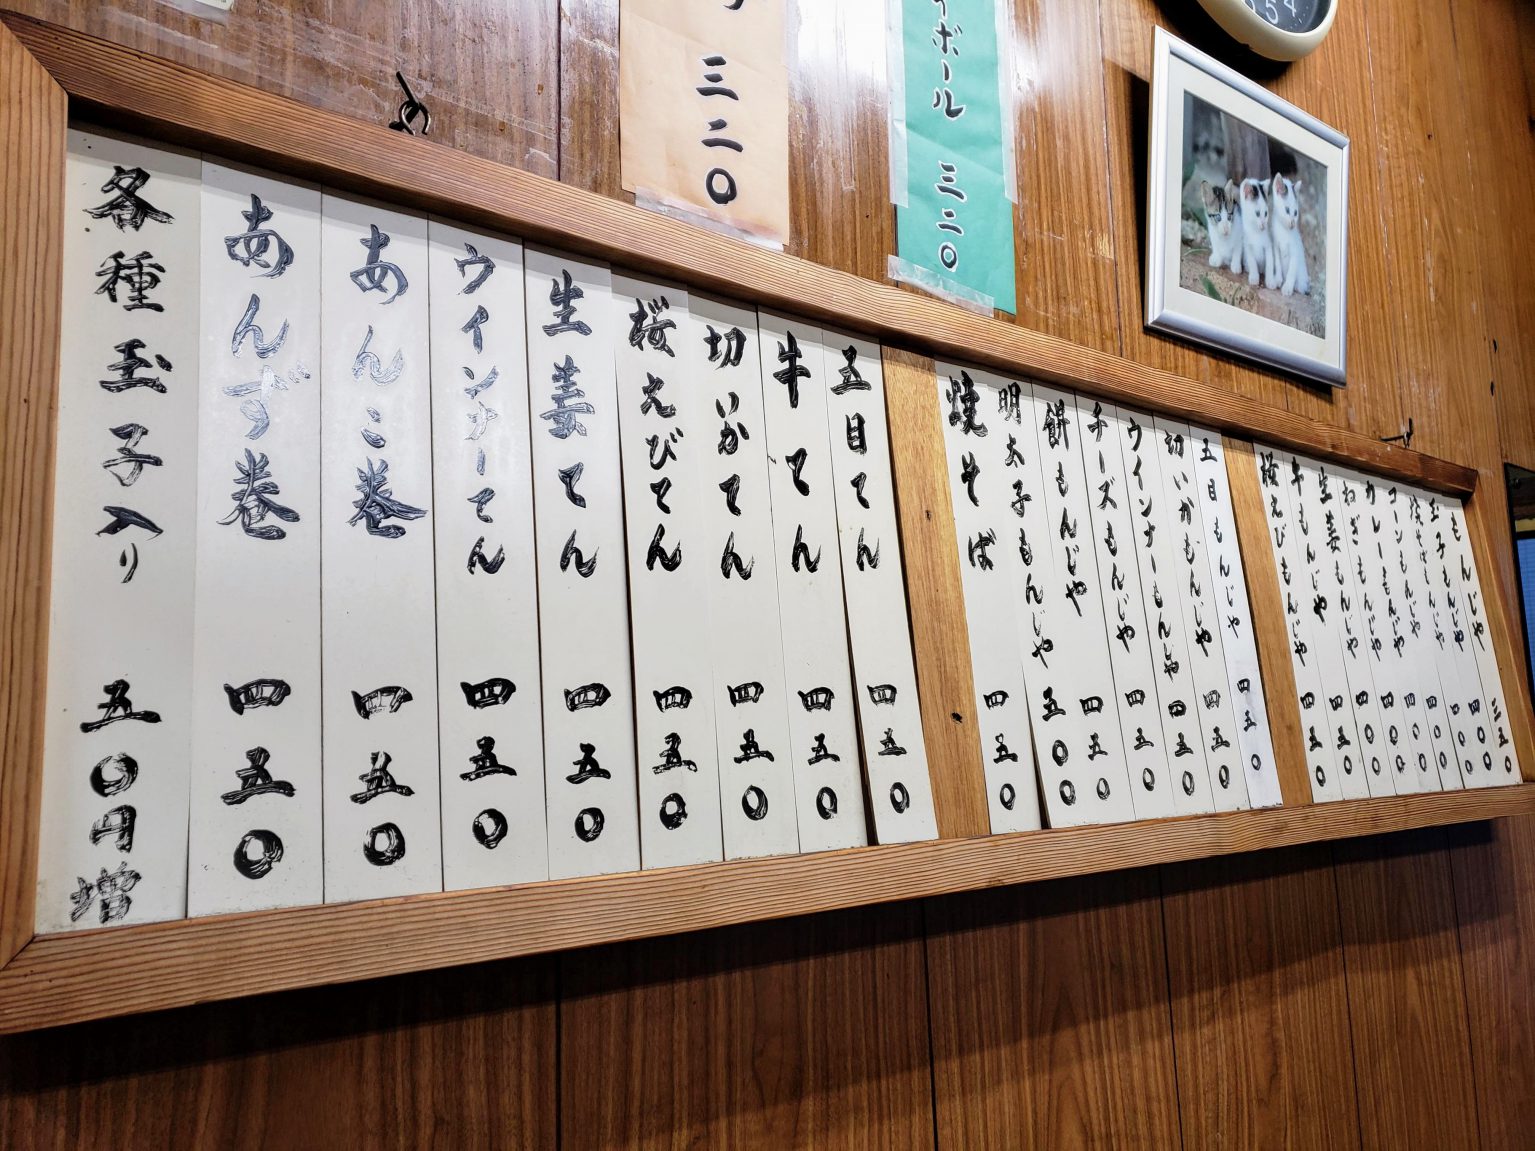 ボール 三二〇
三二〇
もんじゃ 三五〇
玉子もんじゃ 四〇〇
焼そばもんじゃ 四〇〇
コーンもんじゃ 四〇〇
カレーもんじゃ 四〇〇
ねぎもんじゃ 四〇〇
生姜もんじゃ 四〇〇
牛もんじゃ 四五〇
桜えびもんじゃ 四五〇
五目もんじゃ 四五〇
切いかもんじゃ 四五〇
ウインナーもんじゃ 四五〇
チーズもんじゃ 四五〇
餅もんじゃ 四五〇
明太子もんじゃ 五〇〇
焼そば 四五〇
五目てん 四五〇
牛てん 四五〇
切いかてん 四五〇
桜えびてん 四五〇
生姜てん 四五〇
ウインナーてん 四五〇
あんこ巻 四五〇
あんず巻 四五〇
各種玉子入り 五〇円増